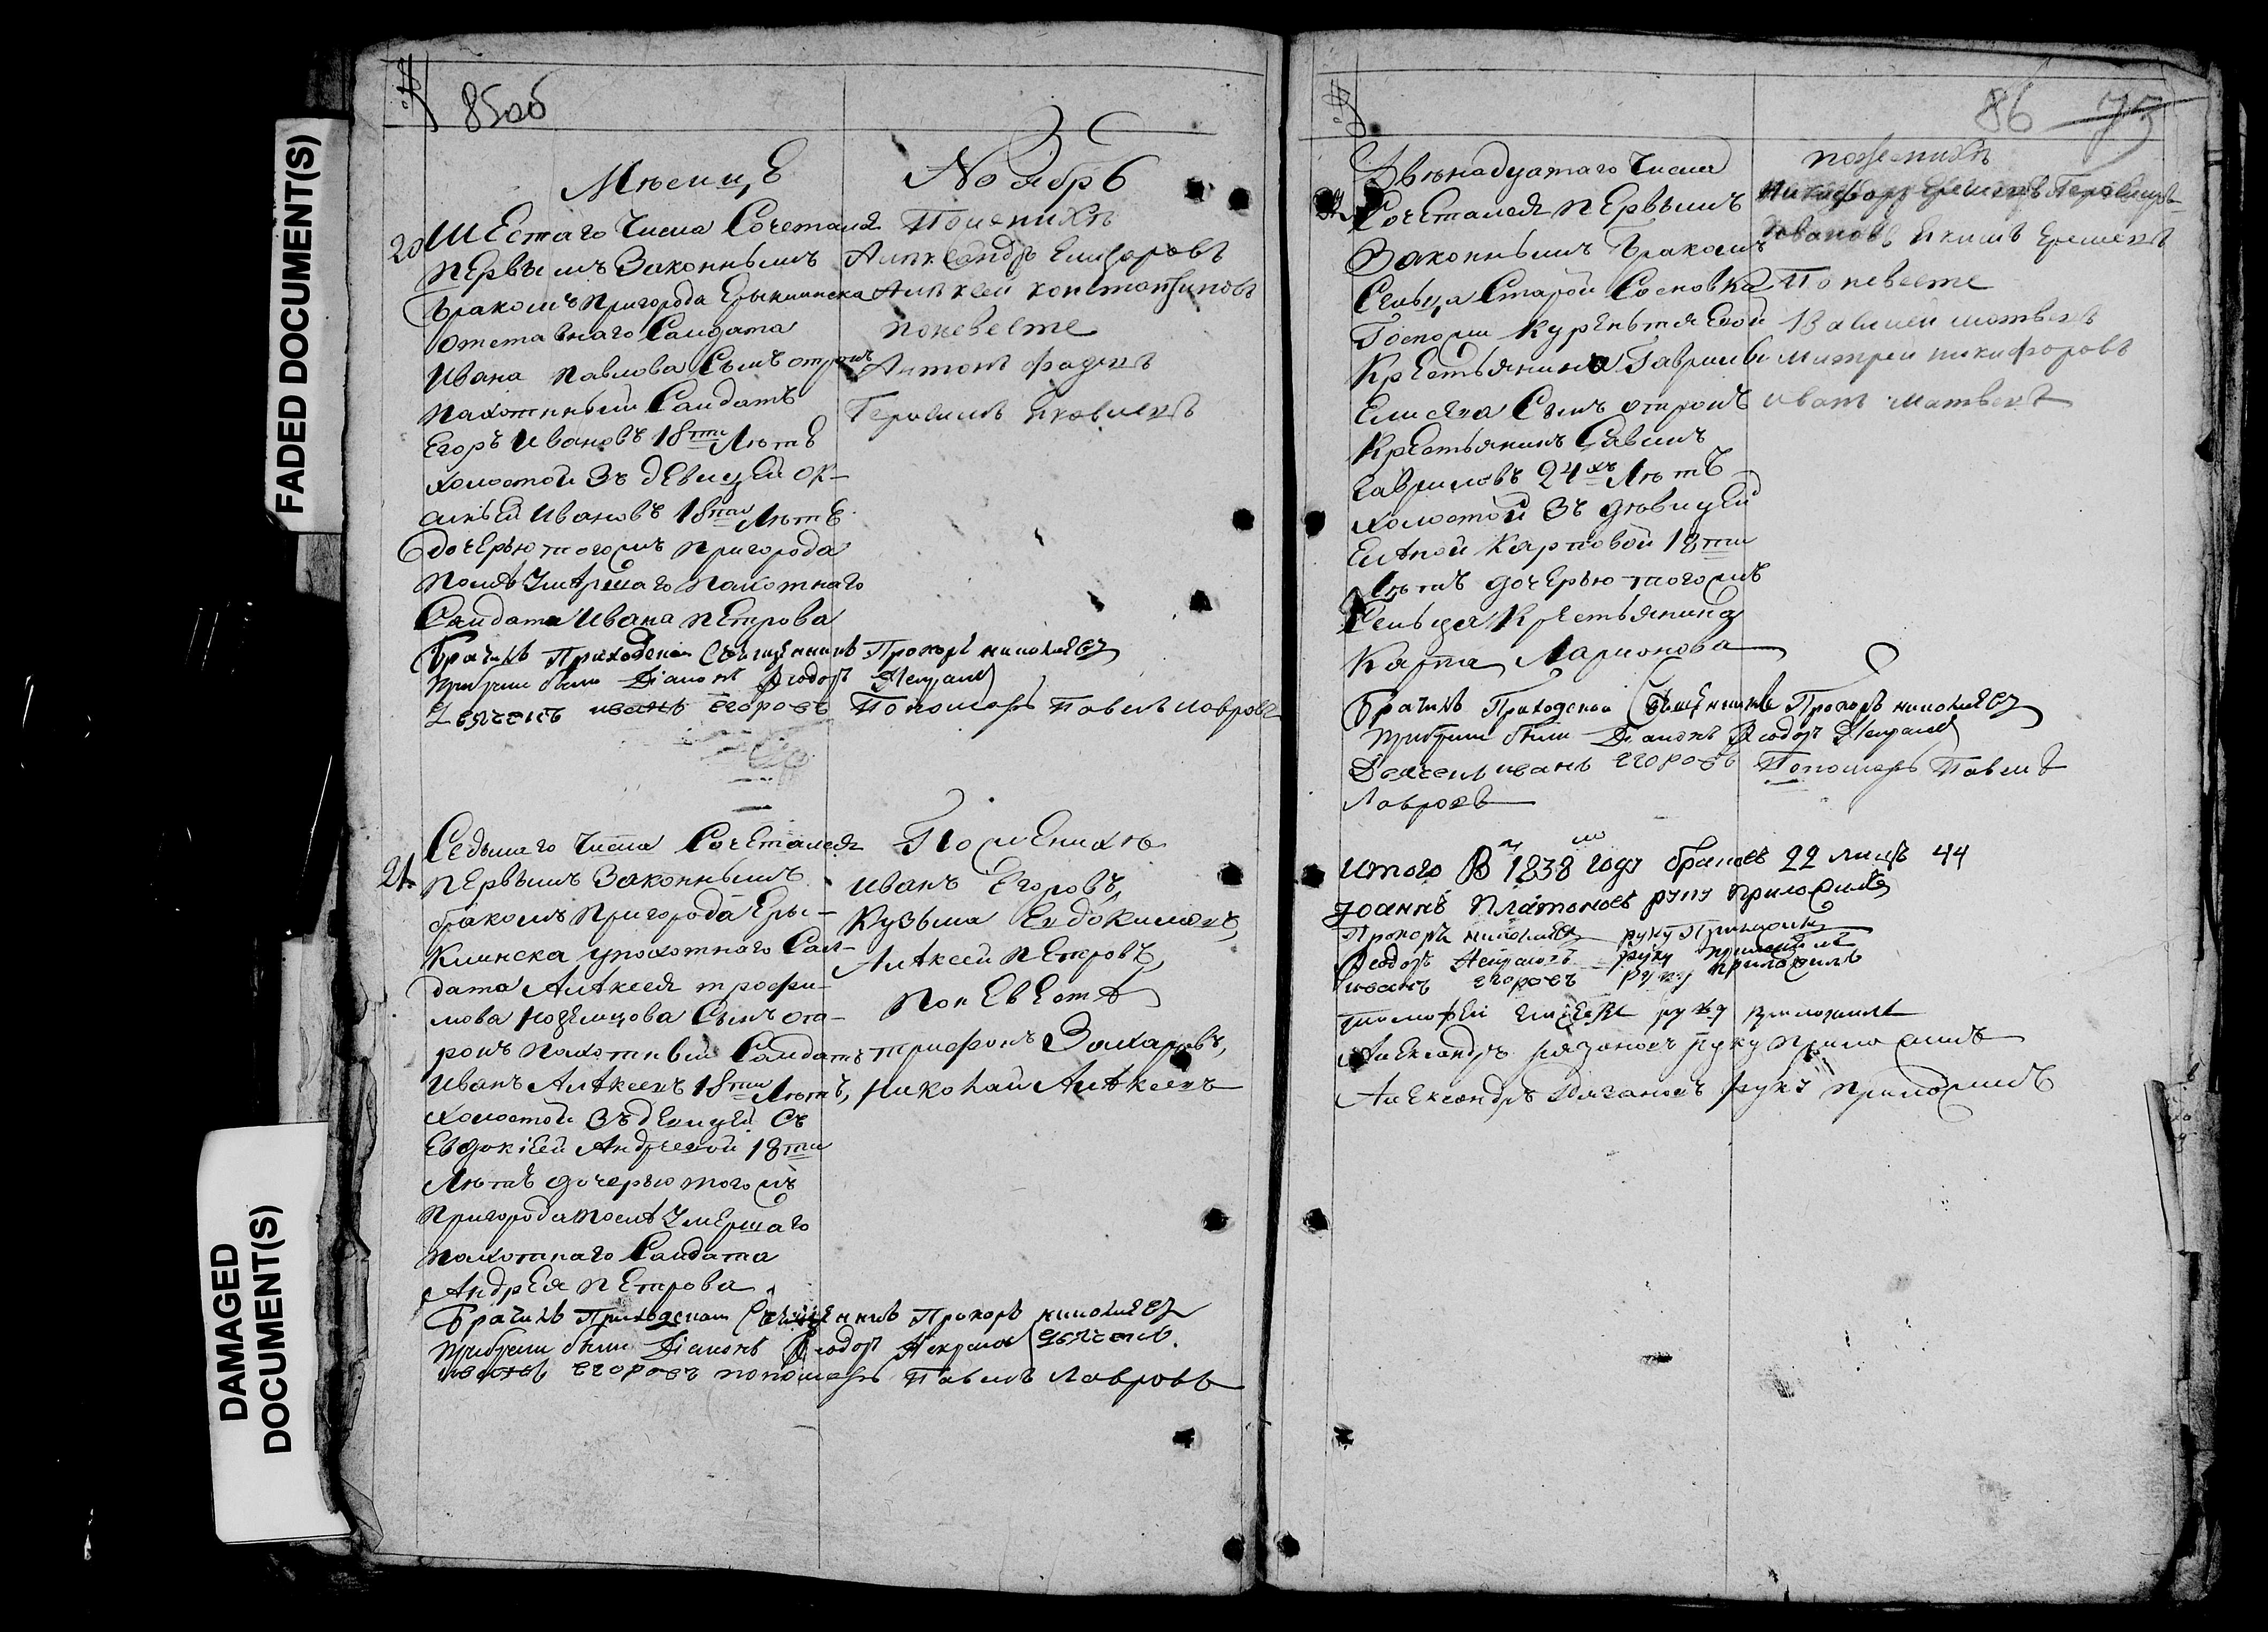 FADED DOCUMENT(S)
DAMAGED
DOCUMENT(S)
85об
Мѣсицъ
20 Шестаго Числа Сочетался
первымъ Законнымъ
бракомъ пригорода Ерыклинска
отставнаго Салдата
Ивана Павлова Сынъ отрокъ
пахотнный Салдатъ
Егоръ Ивановъ 18ти Лѣтъ
холостой Зъ девицей
Ивановъ 18ти Лѣтъ
дочерью тогожъ пригорода
послѣ Умершаго пахотнаго
Салдата Ивана Петрова
Ноябрь
Поженихѣ
Александръ Елизаровъ
Алѣксей константиновъ
поневесте
Антонъ фадеевъ
Герасимъ Яковлевъ
Брачилъ Приходской Священникъ Прохоръ николаев
притомъ были Діаконъ Ѳеодоръ
Дьячекъ иванъ егоровъ Пономарь Павелъ лавровъ
21. Седьмаго Числа Сочетался
первымъ Законнымъ
бракомъ Пригорода Еры-
клинска упахотнаго Сал-
дата Алѣксея трофи-
мова Сынъ от-
рокъ пахотный Салдатъ
Иванъ Алѣксеевъ 18ти Лѣтъ,
холостой Зъ девицей Съ
Евдокіей Андреевой 18ти
Лѣтъ дочерью тогожъ
пригорода послѣ Умершаго
пахотнаго Салдата
Андрея Петрова
Поженихѣ
иванъ Егоровъ,
Кузьма Евдокимовъ,
Алѣксей петровъ,
поневестѣ
трифонъ Захаровъ,
николай Алѣксеевъ
Брачилъ Приходской Священникъ Прохоръ николаев
притомъ были Діаконъ Ѳеодоръ дьячекъ
иванъ егоровъ пономарь Павелъ Лавровъ
86 75
Двѣнадцатаго Числа
Сочетался первымъ
Законнымъ бракомъ
Сельца Старой Сосновка
Госпожи
Крестьянина Гаврилы
Елисѣва Сынъ отрокъ
Крестьянинъ Савинъ
гавриловъ 24хъ Лѣтъ
холостой Зъ дѣвицей
Еленой Карповой 18ти
Лѣтъ дочерью тогожъ
Сельца Крестьянина
Карпа Ларионова
поженихѣ
никифоръ
ивановъ Екимъ Еремеевъ
Поневесте
Василей матвеевъ
митрей никифоровъ
иванъ матвеевъ
Брачилъ Приходской Священникъ Прохоръ николаев
притомъ были Діаконъ Ѳеодоръ
Дьячекъ иванъ егоровъ Пономарь Павелъ
Лавровъ
Итого В 1838 году браковъ 22 лицъ 44
Іоаннъ Платоновъ руку приложилъ
Прохоръ николаев руку Приложилъ
Ѳеодоръ руку приложилъ
иванъ егоровъ руку приложилъ
тимофей руку приложилъ
Александръ рязановъ руку приложилъ
Александръ руку приложилъ